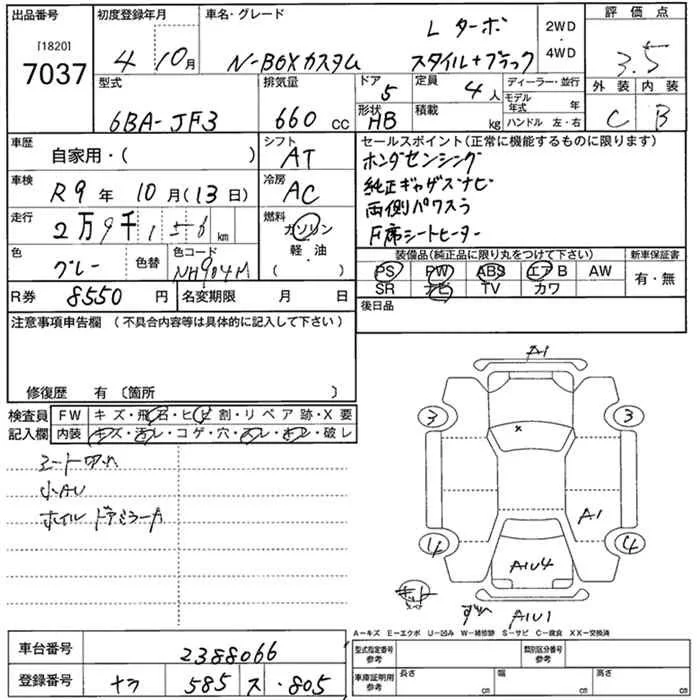 出品番号
[1820]
7037
初度登録年月
4 10月
車名・グレード
N-BOXカスタム
L ターボ
スタイル+ブラック
2WD
4WD
評価点
3.5
外装 内装
C B
型式
6BA-JF3
排気量
660 CC
ドア
5
形状
HB
定員
4人
積載
kg
ディーラー・並行
モデル年式 年
ハンドル 左・右
車歴
自家用・( )
シフト
AT
車検
R9年 10月(13日)
冷房
AC
走行
2万9千156km
燃料
ガソリン
軽・油
( )
色
グレー
色替
色コード
NH904M
R券
8550円
名変期限 月 日
セールスポイント(正常に機能するものに限ります)
ホンダセンシング
純正ギャザズナビ
両側パワスラ
F席シートヒーター
装備品(純正品に限り丸をつけて下さい)
PS PW ABS エアB AW
SR ナビ TV カワ
新車保証書
有・無
後日品
注意事項申告欄(不具合内容等は具体的に記入して下さい)
修復歴 有(箇所 )
検査員
記入欄
FW キズ・飛石・ヒビ割・リペア跡・X要
内装 キズ・汚レ・コゲ・穴・スレ・キレ・破レ
シート切れ
小AU
ホイル ドアミラーカ
A1
3 3
A1
4 4
A1U4
A1U1
A-キズ E-エクボ U-凹み W-補修跡 S-サビ C-腐食 XX-交換済
車台番号
2388066
登録番号
585 ス ・805
型式指定番号
参考
類別区分番号
参考
車庫証明用
参考
長さ cm
幅 cm
高さ cm